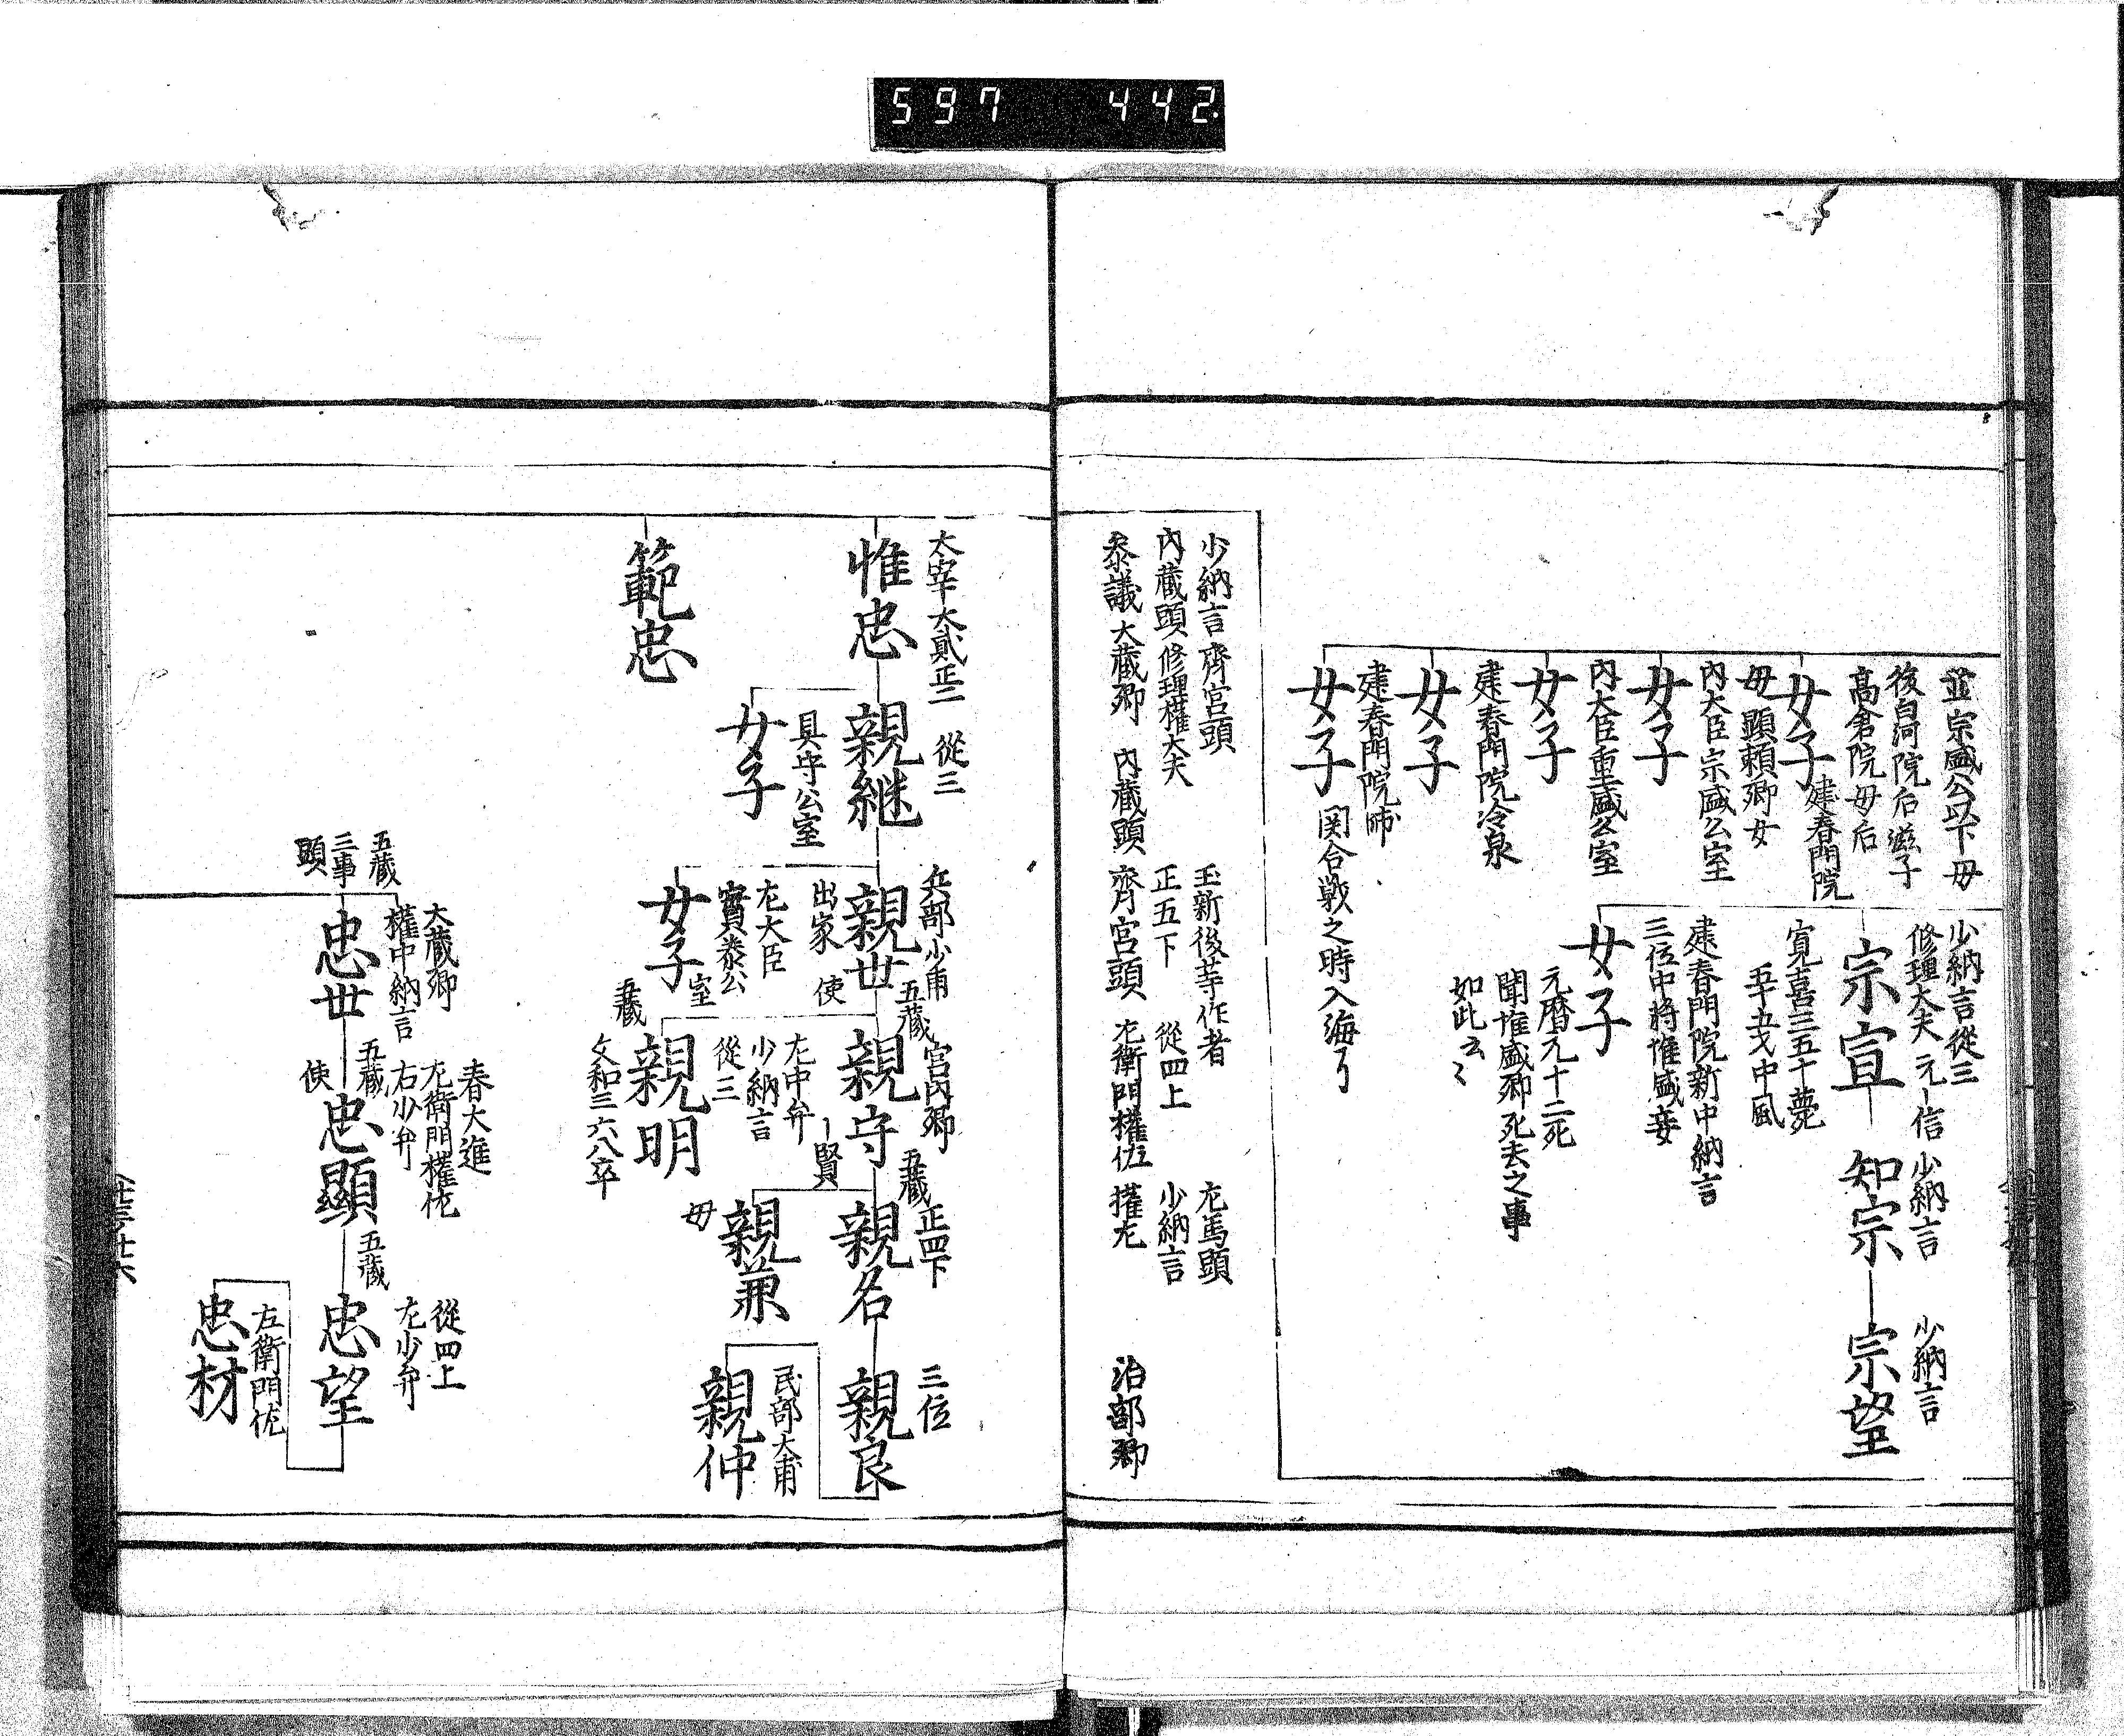 597 442
並宗盛公以下母
後白河院后滋子
高倉院母后
女子 建春門院
母顕頼卿女
内大臣宗盛公室
女子
内大臣重盛公室
女子
建春門院冷泉
女子
建春門院帥
女子 関合戦之時入海了
少納言從三
修理大夫 元信
宗宣
寛喜三五十薨
五十五才中風
少納言
知宗
少納言
宗望
建春門院新中納言
三位中将惟盛妾
女子
元暦元十二死
聞惟盛卿死去之事
如此云々
少納言 齊宮頭
内蔵頭 修理權大夫
参議 大蔵卿 内蔵頭
玉新後等作者
正五下 從四上
齊宮頭 左衛門權佐 權左
左馬頭
少納言
治部卿
太宰大貳正二
惟忠
從三
親継
具守公室
女子
兵部少甫
親世
出家 使
左大臣
實泰公室
女子
五蔵
宮内卿
親守
左中弁
少納言
從三
五蔵
親明
文和三六八卒
五蔵
正四下
親名
賢
親兼
母
三位
親良
民部大甫
親仲
範忠
五蔵
三事
頭
大蔵卿
權中納言
忠世
春大進
左衛門權佐
右少弁
五蔵
使
忠顯
五蔵
從四上
左少弁
忠望
左衛門佐
忠材